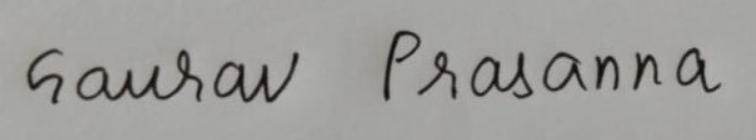 Gaurav Prasanna